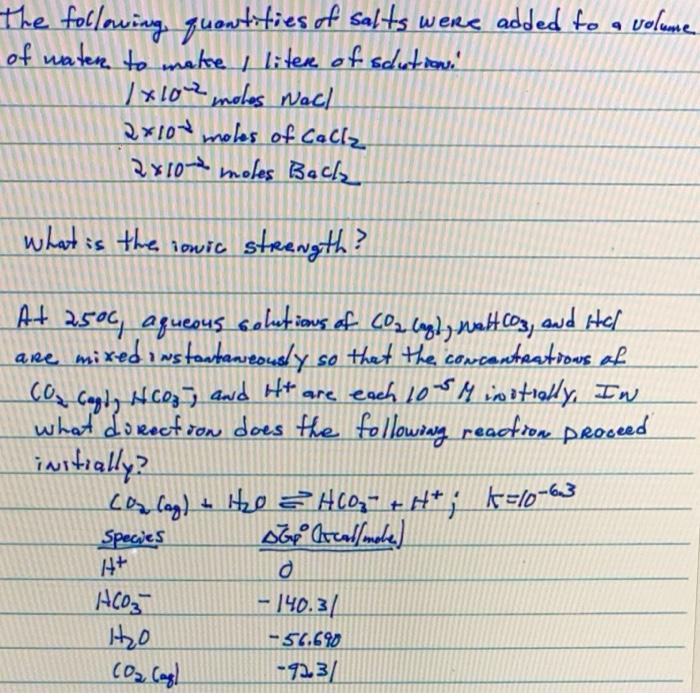 The following quantities of salts were added to a volume
of water to make 1 liter of solution:
1×10⁻² moles NaCl
2×10⁻² moles of CaCl₂
2×10⁻² moles BaCl₂
What is the ionic strength?
At 25°C, aqueous solutions of CO₂ (aq), NaHCO₃, and HCl
are mixed instantaneously so that the concentrations of
CO₂ (aq), HCO₃⁻, and H⁺ are each 10⁻⁵ M initially. In
what direction does the following reaction proceed
initially?
CO₂ (aq) + H₂O ⇌ HCO₃⁻ + H⁺; K=10⁻⁶·³
Species ΔG̅f° (kcal/mole)
H⁺ 0
HCO₃⁻ -140.31
H₂O -56.690
CO₂ (aq) -92.31